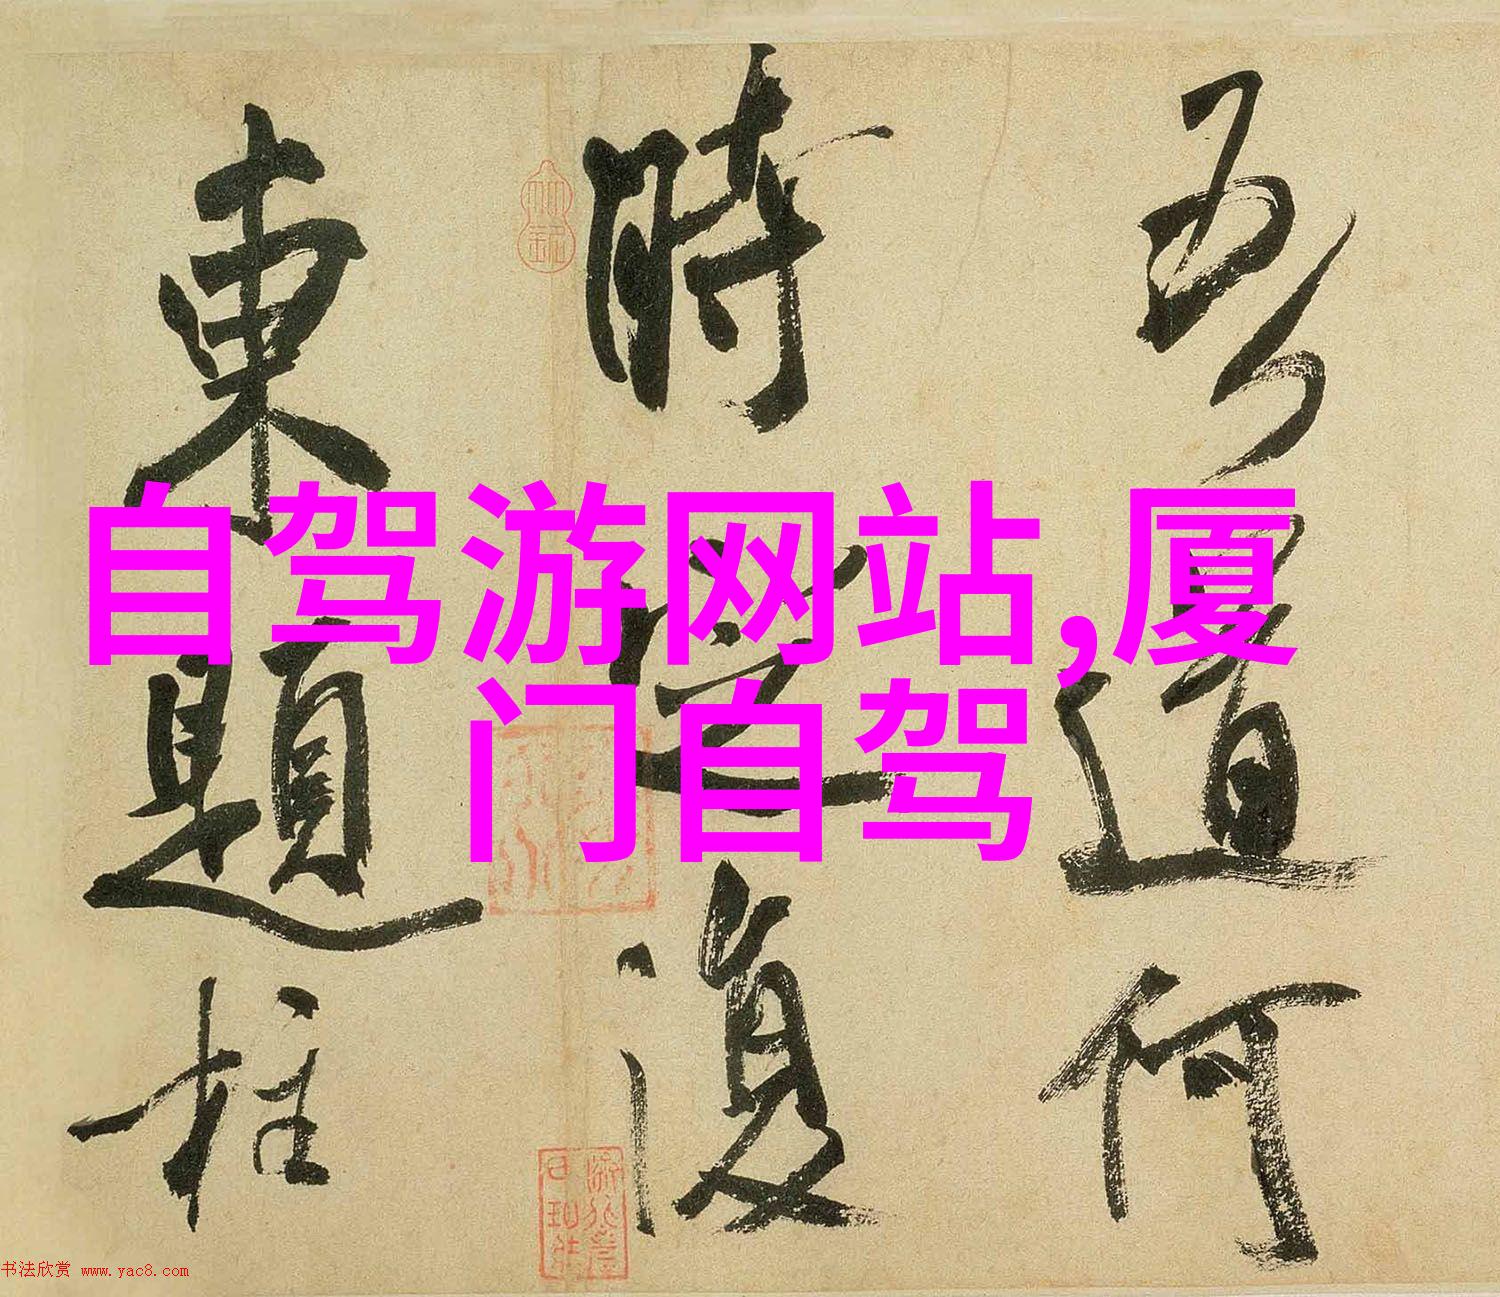 吾道何
時堂復
東題柱
自驾游网站,厦
门自驾
书法欣赏 www.yac8.com